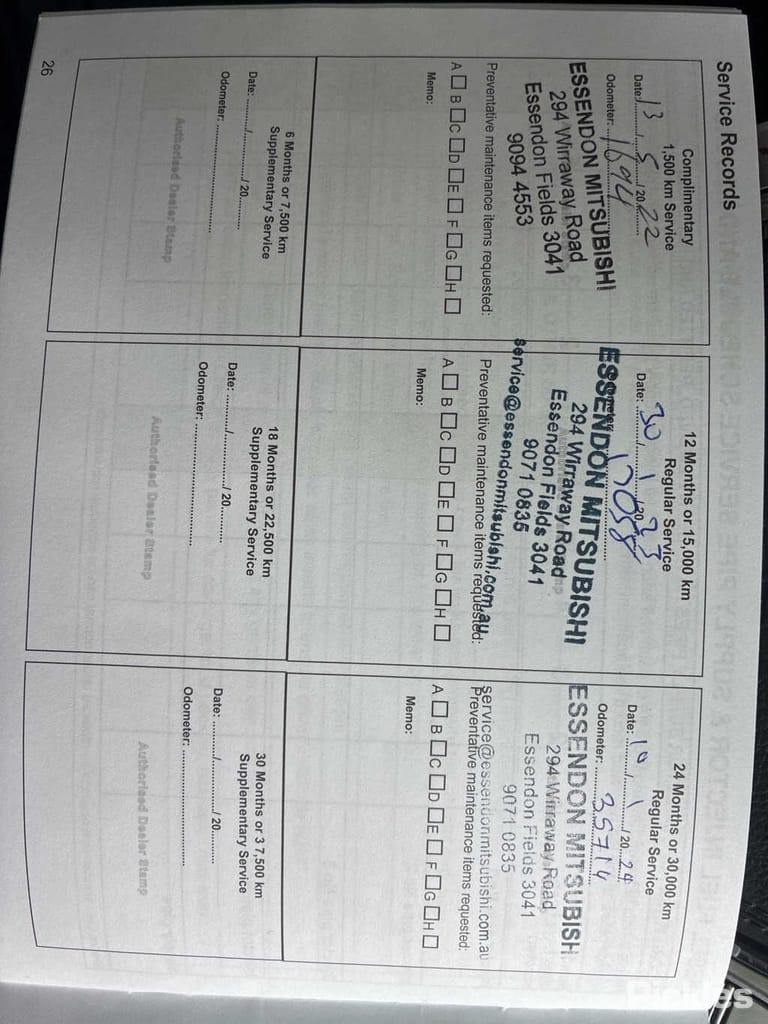 Service Records
Complimentary
1,500 km Service
Date: 13 / 5 / 20 22
Odometer: 1694
ESSENDON MITSUBISHI
294 Wirraway Road
Essendon Fields 3041
9094 4553
Preventative maintenance items requested:
A □ B □ C □ D □ E □ F □ G □ H □
Memo:
12 Months or 15,000 km
Regular Service
Date: 30 / 1 / 20 23
17058
ESSENDON MITSUBISHI
294 Wirraway Road
Essendon Fields 3041
9071 0835
service@essendonmitsubishi.com.au
Preventative maintenance items requested:
A □ B □ C □ D □ E □ F □ G □ H □
Memo:
24 Months or 30,000 km
Regular Service
Date: 10 / 1 / 20 24
Odometer: 35714
ESSENDON MITSUBISH
294 Wirraway Road
Essendon Fields 3041
9071 0835
service@essendonmitsubishi.com.au
Preventative maintenance items requested:
A □ B □ C □ D □ E □ F □ G □ H □
Memo:
6 Months or 7,500 km
Supplementary Service
Date: ........./............./ 20.........
Odometer: ..............................
Authorised Dealer Stamp
18 Months or 22,500 km
Supplementary Service
Date: ........./............./ 20.........
Odometer: ..............................
Authorised Dealer Stamp
30 Months or 3 7,500 km
Supplementary Service
Date: ........./............./ 20.........
Odometer: ..............................
Authorised Dealer Stamp
26
Pickles